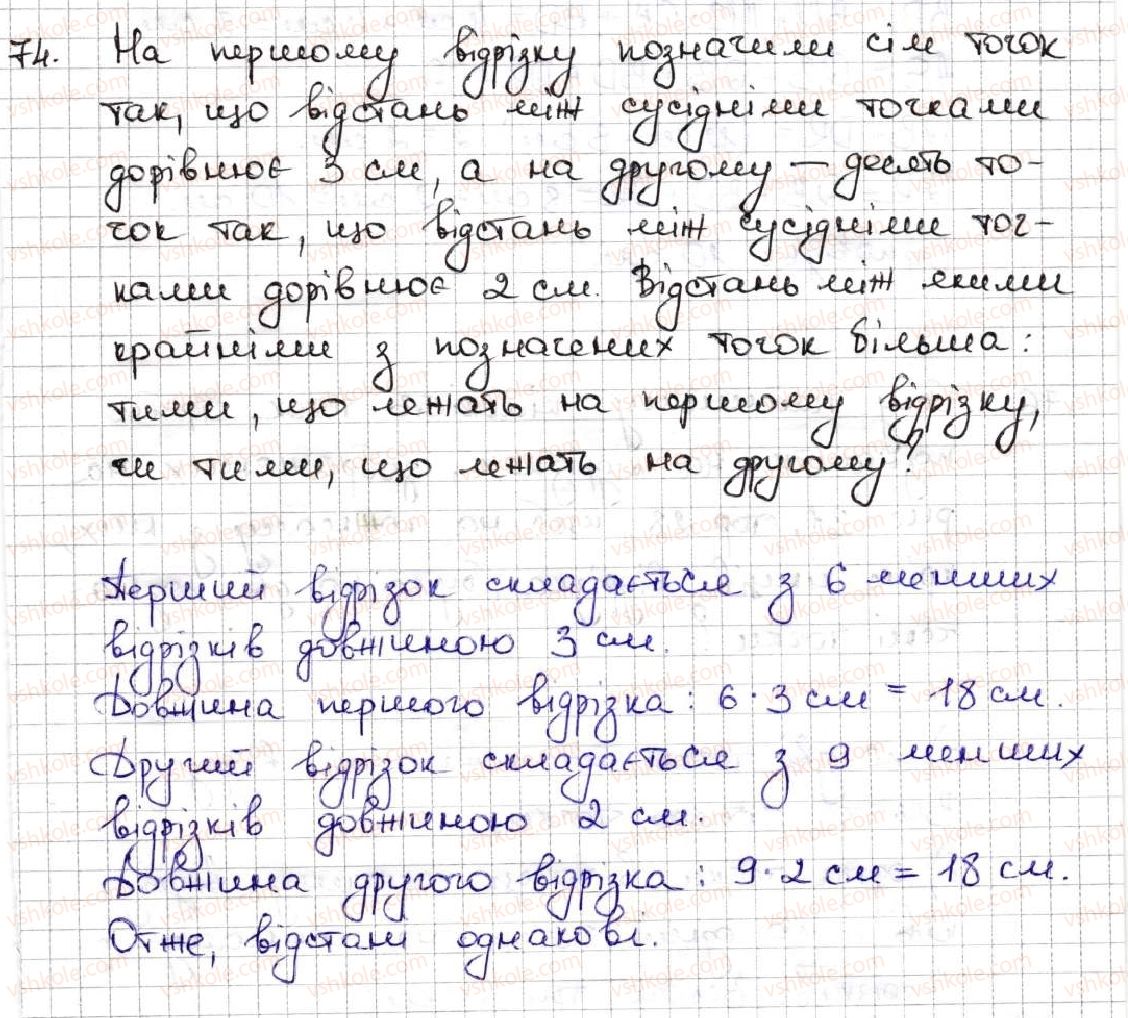 74. На першому відрізку позначили сім точок
так, що відстань між сусідніми точками
дорівнює 3 см, а на другому – десять то-
чок так, що відстань між сусідніми точ-
ками дорівнює 2 см. Відстань між якими
крайніми з позначених точок більша:
тими, що лежать на першому відрізку,
чи тими, що лежать на другому?
Перший відрізок складається з 6 менших
відрізків довжиною 3 см.
Довжина першого відрізка: 6 · 3 см = 18 см.
Другий відрізок складається з 9 менших
відрізків довжиною 2 см.
Довжина другого відрізка: 9 · 2 см = 18 см.
Отже, відстані однакові.